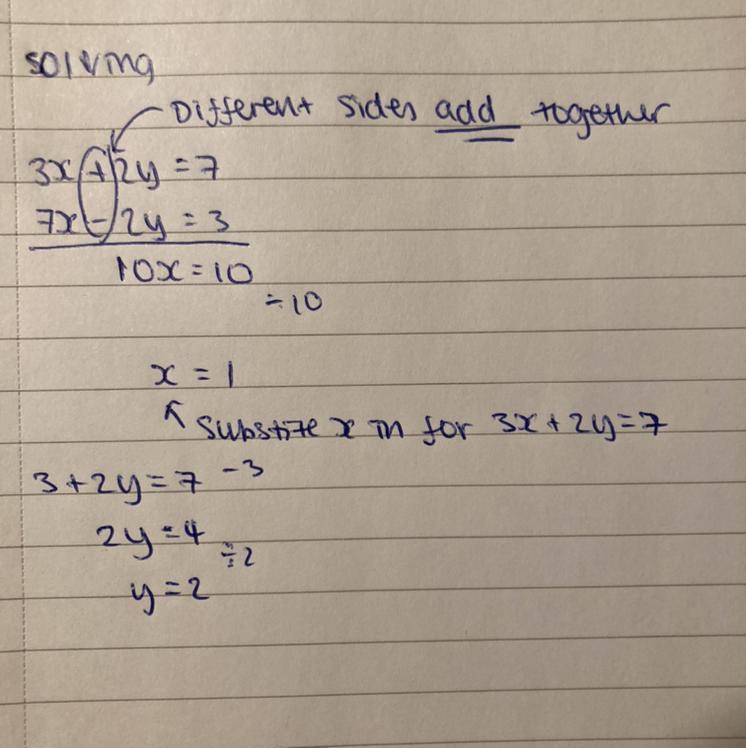 solving
Different sides add together
3x + 2y = 7
7x - 2y = 3
10x = 10
÷10
x = 1
substite x in for 3x + 2y = 7
3 + 2y = 7 -3
2y = 4
÷2
y = 2